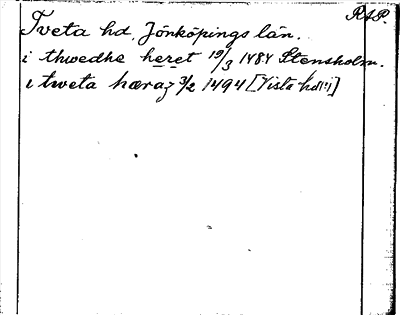 RAP.
Tveta hd, Jönköpings län.
i thwedhe heret 19/3 1484 Stensholm.
i tweta hæraz 3/2 1494 [Vista hd(!)]